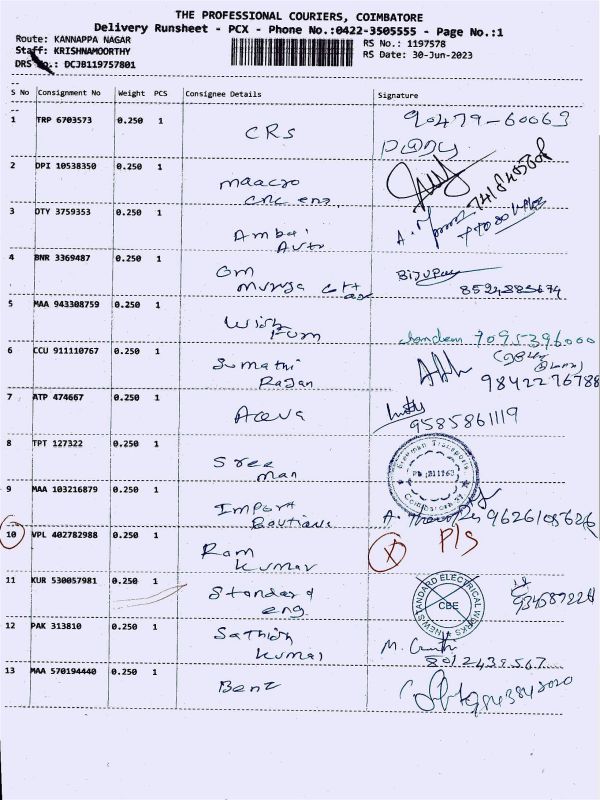 THE PROFESSIONAL COURIERS, COIMBATORE
Delivery Runsheet - PCX - Phone No.:0422-3505555 - Page No.:1
Route: KANNAPPA NAGAR
RS No.: 1197578
Staff: KRISHNAMOORTHY
RS Date: 30-Jun-2023
DRS No.: DCJB119757801
S No Consignment No Weight PCS Consignee Details Signature
1 TRP 6703573 0.250 1 CRS 90479-60063
2 DPI 10538350 0.250 1 maacro
cnc eng.
3 OTY 3759353 0.250 1 Ambai
Auto
4 BNR 3369487 0.250 1 Om
muruga
8524885674
5 MAA 943308759 0.250 1 Wish
Furn
7095396000
6 CCU 911110767 0.250 1 Sumathi
Rajan
9842276788
7 ATP 474667 0.250 1
9585861119
8 TPT 127322 0.250 1 Sree
man
9 MAA 103216879 0.250 1 Import
Boutique
A. 9626105626
10 VPL 402782988 0.250 1 Ram
Kumar
X P/S
11 KUR 530057981 0.250 1 Standard
eng
NEW STANDARD ELECTRICAL WORKS
CBE
12 PAK 313810 0.250 1 Sathish
Kumar
M.
8012438567
13 MAA 570194440 0.250 1 Benz